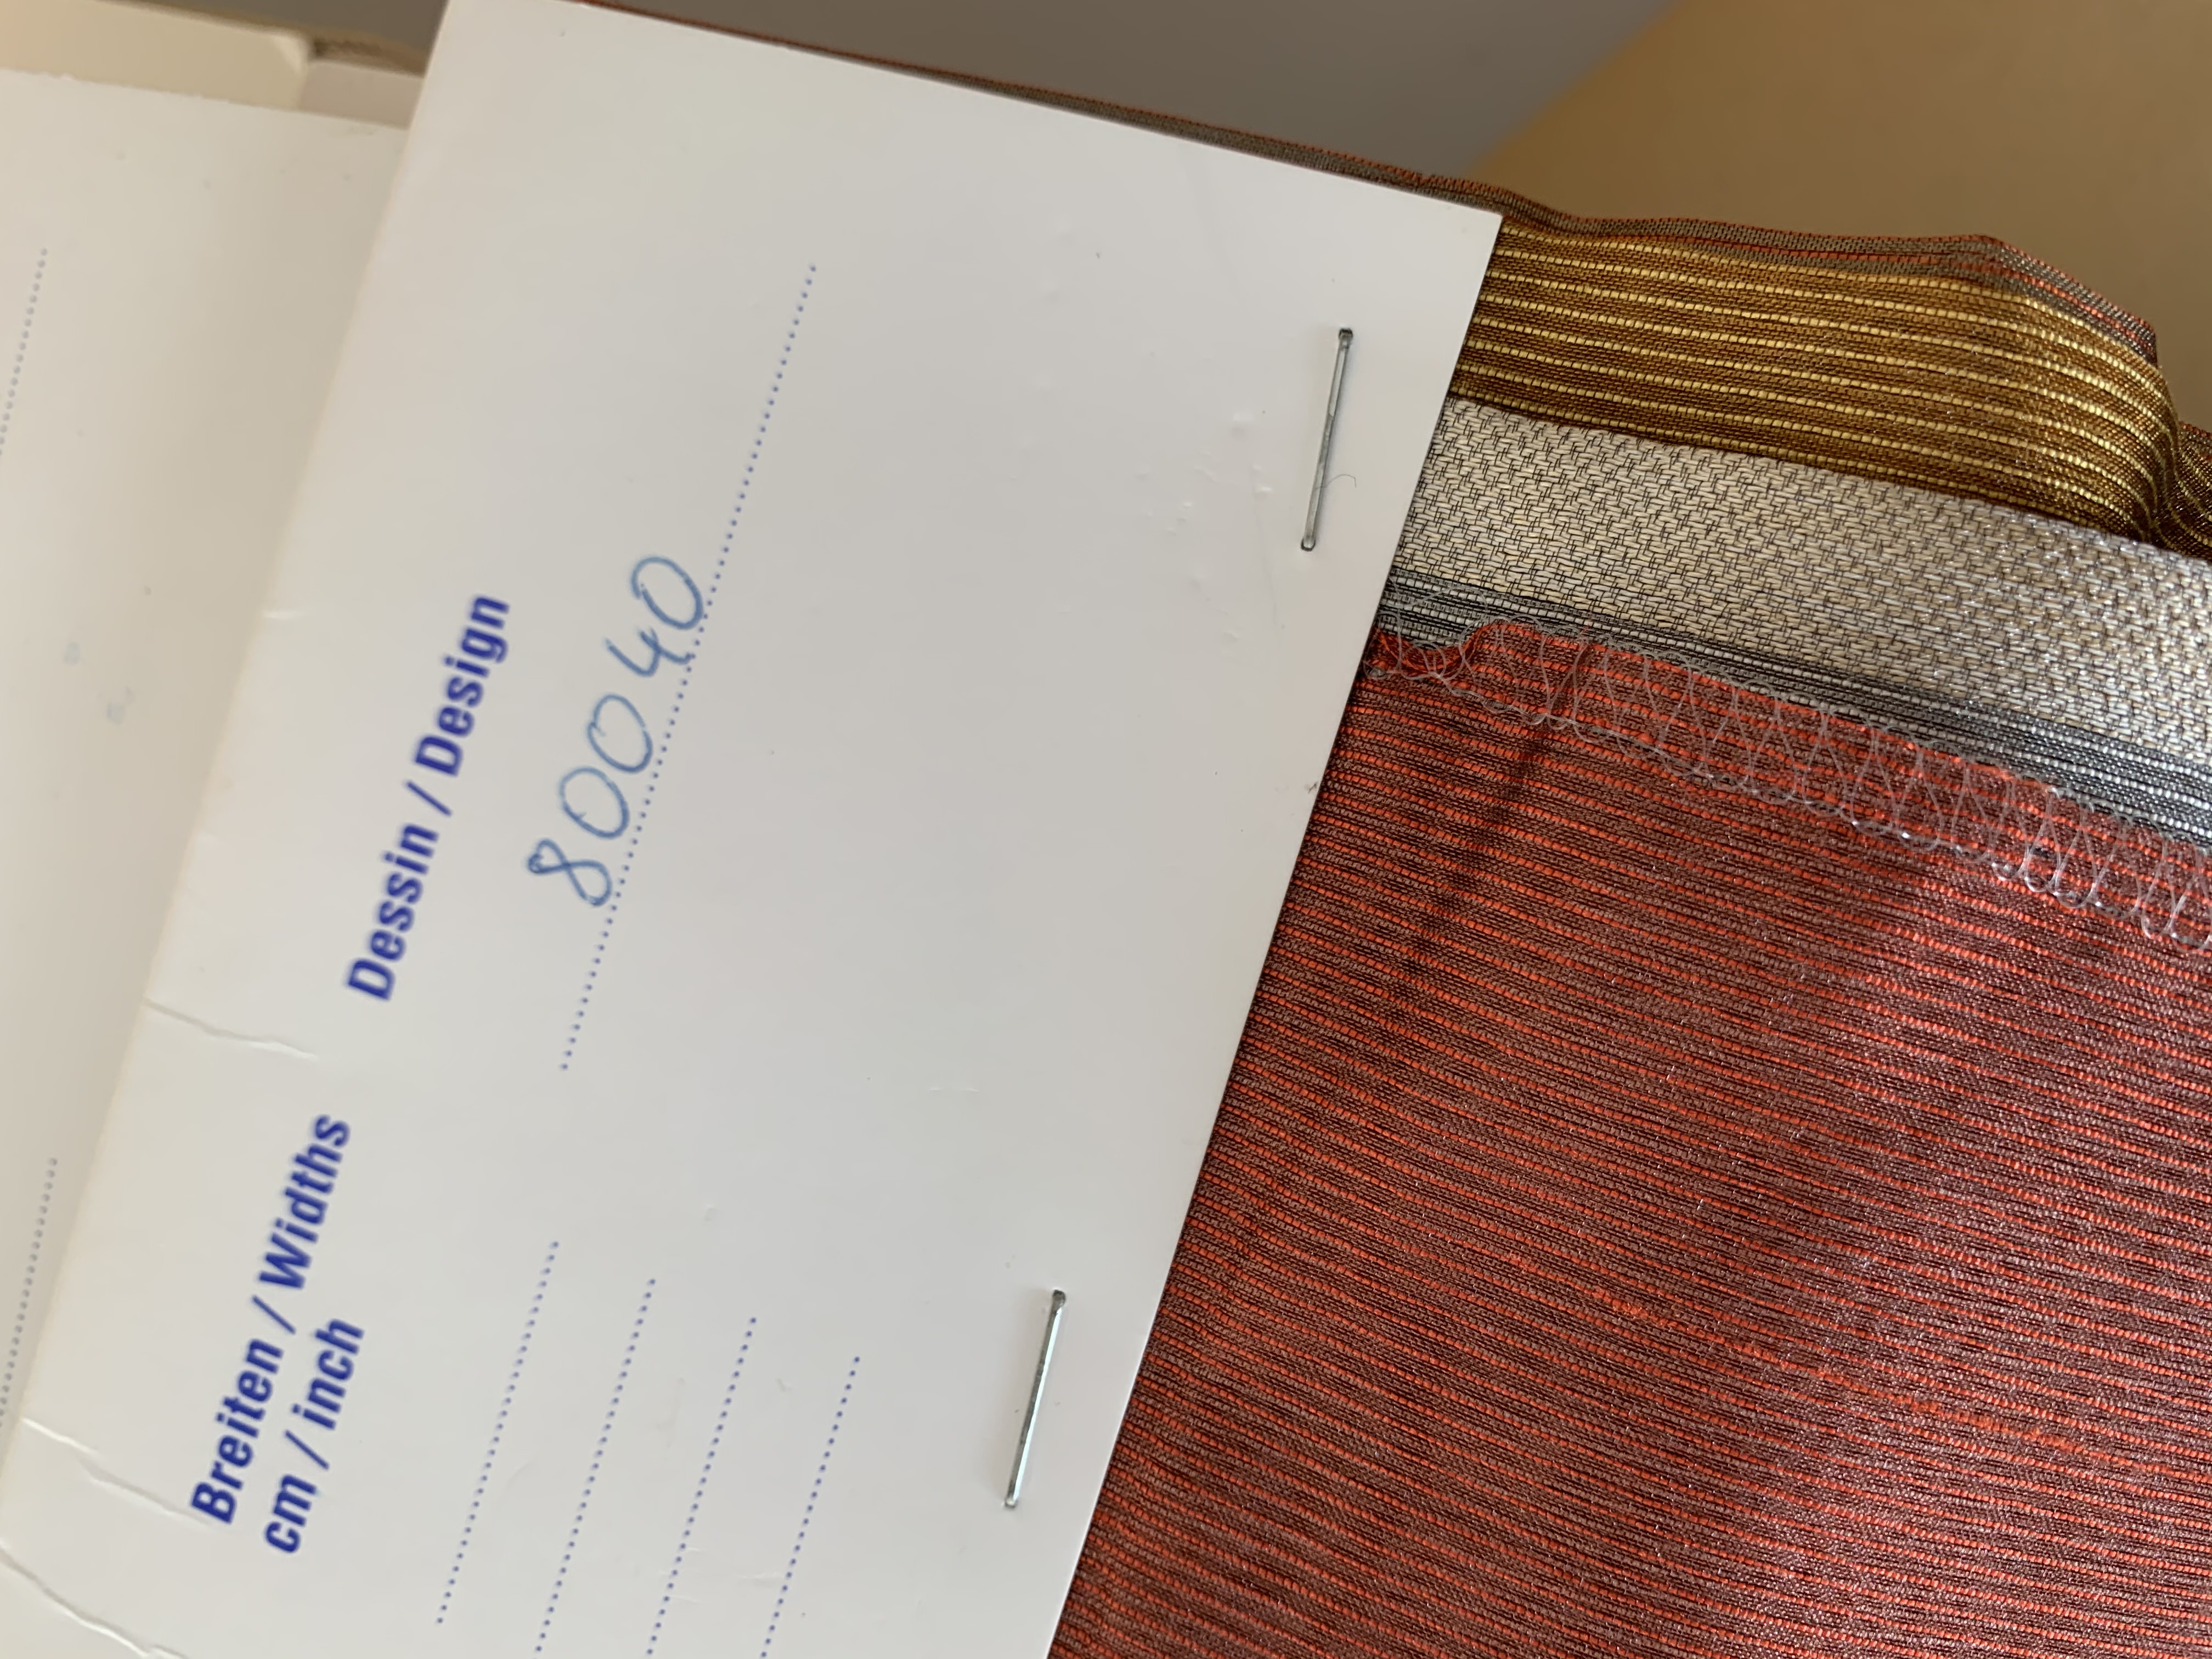 Breiten / Widths
cm / inch
Dessin / Design
80040